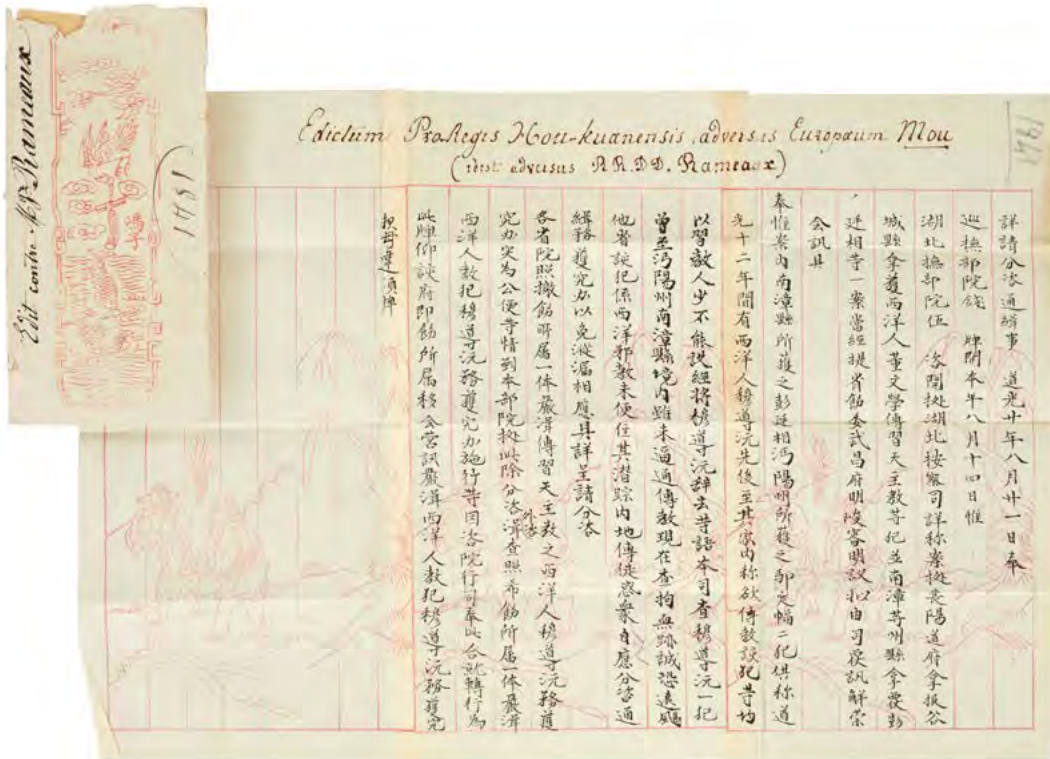 Edit contre M.P. Rameaux
馮子
1841
1841
Edictum ProRegis Hou-kuanensis adversus Europæum Mou
(idest adversus R.R.DD. Rameaux)
詳請分咨通緝事 道光廿年八月廿一日奉
巡撫部院錢 牌開本年八月十四日准
湖北撫部院伍 咨開據湖北按察司詳称案據襄陽道府拿報谷
城縣拿獲西洋人董文學傳習天主教等犯並南漳等州縣拿獲彭
廷相等一案當經提省飭委武昌府明峻審明議拟由司覆訊解崇
会訊具
奏惟案内南漳縣所獲之彭廷相沔陽州所獲之鄒定幅二犯俱称道
光十二年間有西洋人穆導沅先後至其家内称欲傳教設犯等均
以習教人少不能説經將穆導沅辞去等語本司查穆導沅一犯
曾至沔陽州南漳縣境内雖未逼通傳教現在查拘無跡誠恐遠颺
他省該犯係西洋邪教未便任其潜踪内地傳徒惑衆自應分咨通
緝務獲究办以免漎漏相應具詳呈請分咨
各省院照撤飭所属一体嚴緝傳習天主教之西洋人穆導沅務獲
究办实為公便等情到本部院據此除分咨外咨緝查照希飭所属一体嚴緝
西洋人教犯穆導沅務獲究办施行等因咨院行司奉此合就轉行為
此牌仰該府即飭所属移会营訊嚴緝西洋人教犯穆導沅務獲究
報毋違須牌